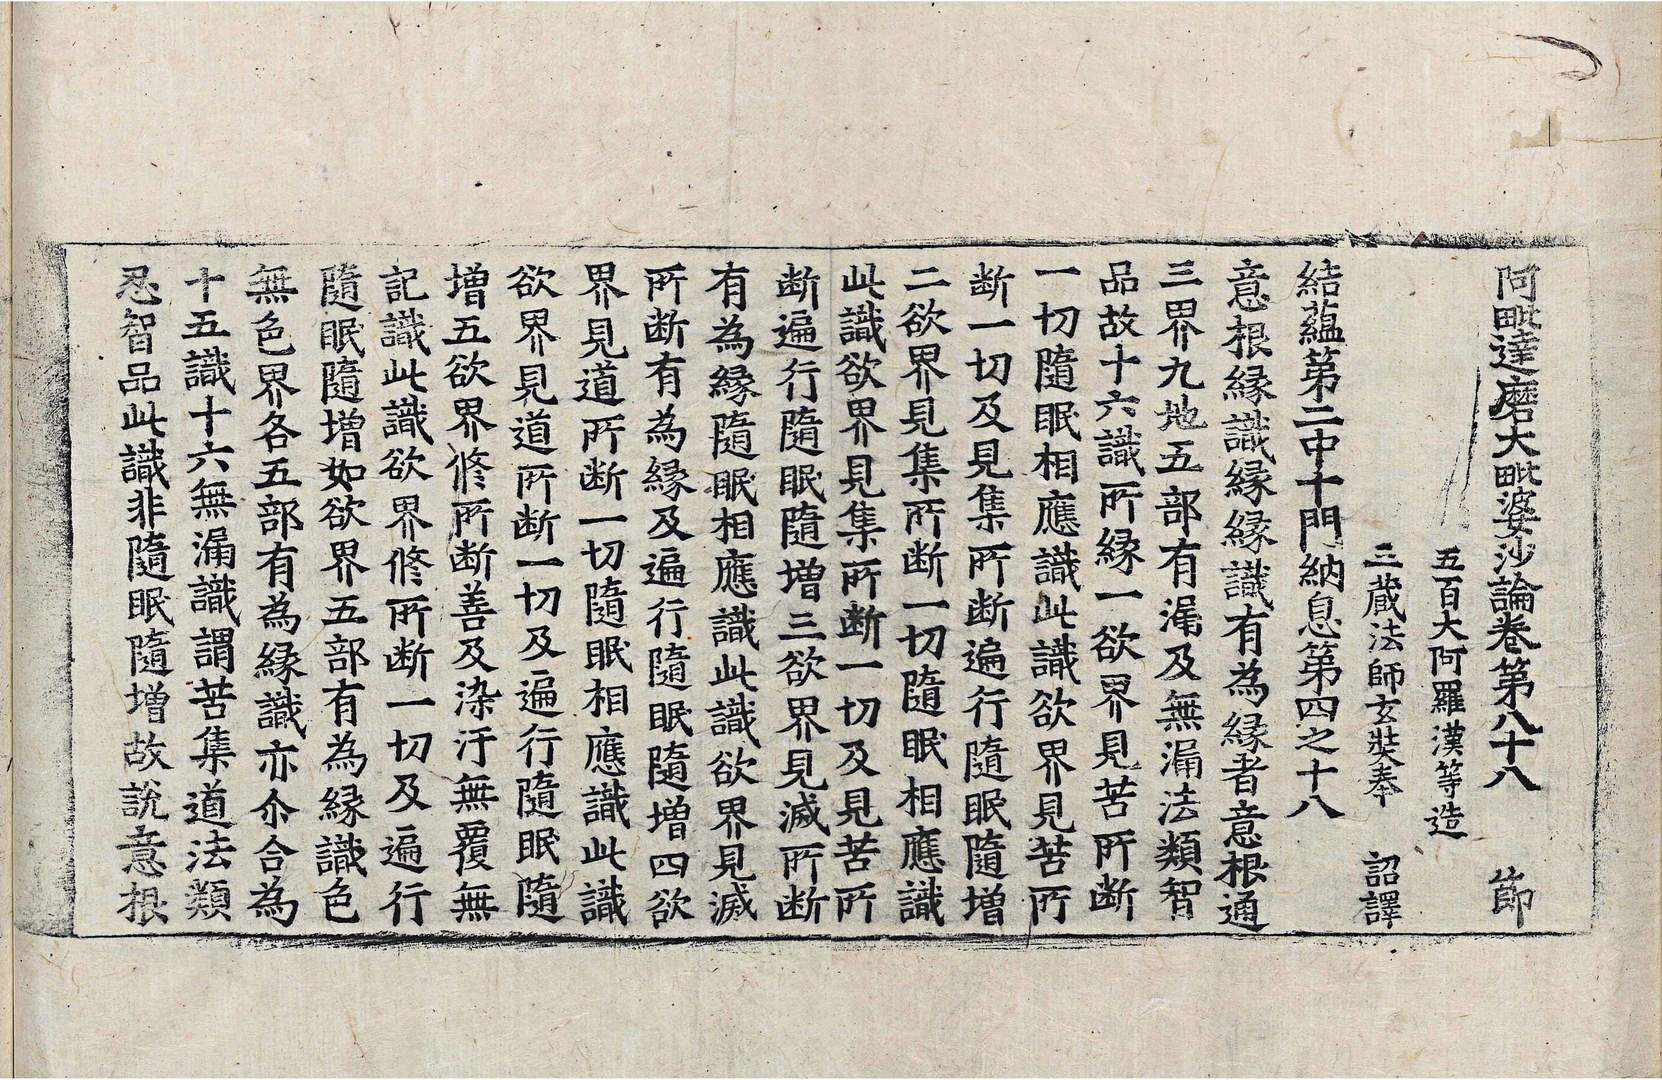 阿毗達磨大毗婆沙論卷第八十八　節
五百大阿羅漢等造
三蔵法師玄奘奉　詔譯
結蘊第二中十門納息第四之十八
意根緣識緣緣識有為緣者意根通
三界九地五部有漏及無漏法類智
品故十六識所緣一欲界見苦所斷
一切隨眠相應識此識欲界見苦所
断一切及見集所断遍行隨眠隨增
二欲界見集所断一切隨眠相應識
此識欲界見集所断一切及見苦所
断遍行隨眠隨增三欲界見滅所断
有為緣隨眠相應識此識欲界見滅
所断有為緣及遍行隨眠隨增四欲
界見道所断一切隨眠相應識此識
欲界見道所断一切及遍行隨眠隨
增五欲界修所断善及染汙無覆無
記識此識欲界修所断一切及遍行
隨眠隨增如欲界五部有為緣識色
無色界各五部有為緣識亦尒合為
十五識十六無漏識謂苦集道法類
忍智品此識非隨眠隨增故說意根